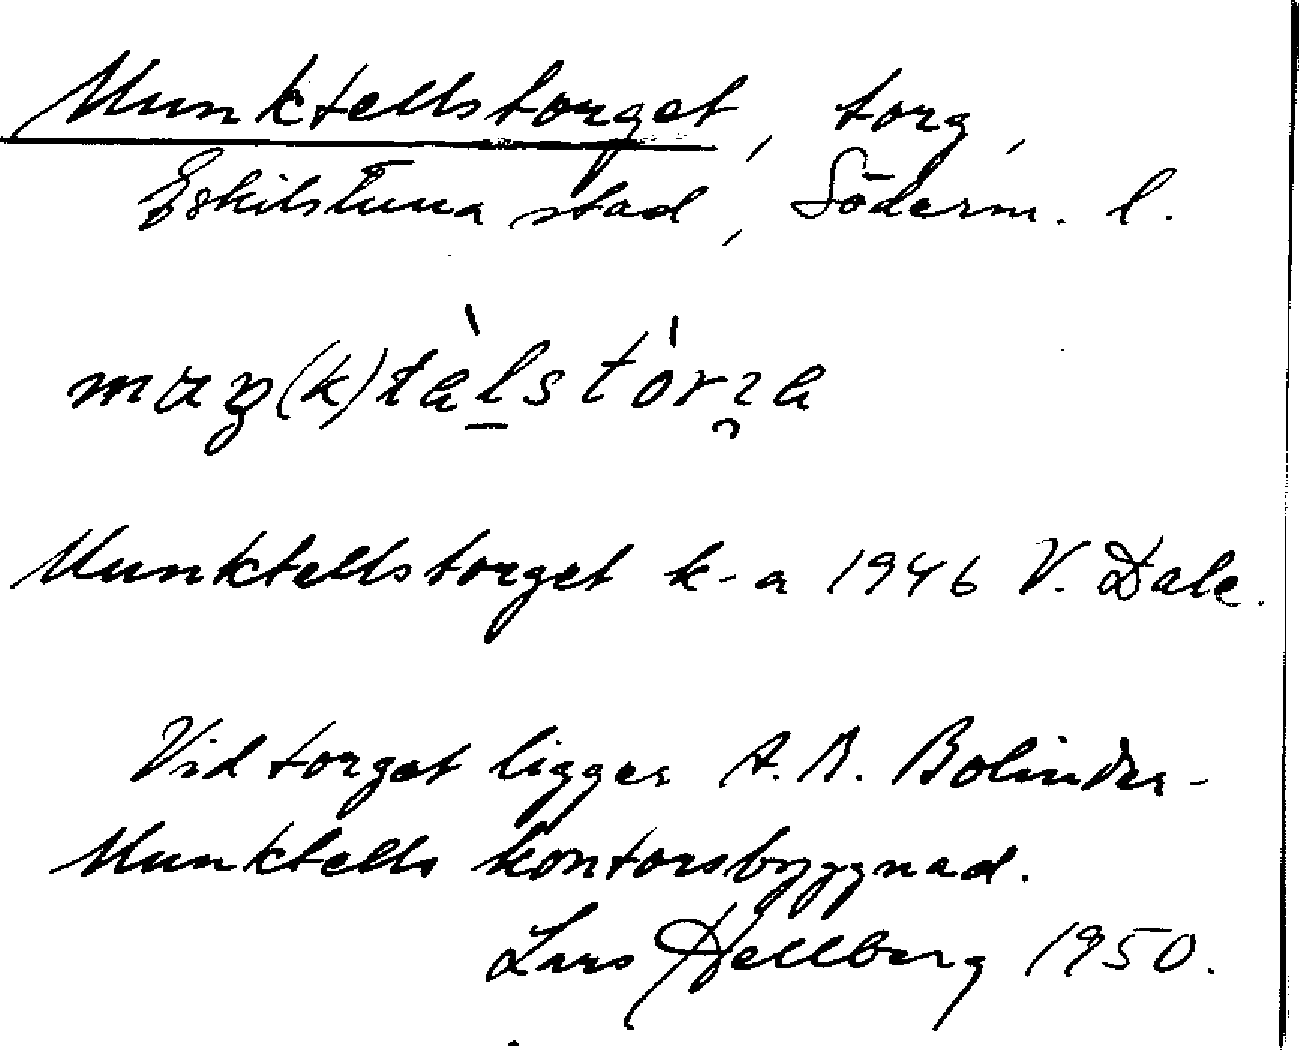 Munktellstorget, torg,
Eskilstuna stad, Söderm. l.
Munktellstorget k-a 1946 V. Dale.
Vid torget ligger A.B. Bolinder-
Munktells kontorsbyggnad.
Lars Hellberg 1950.